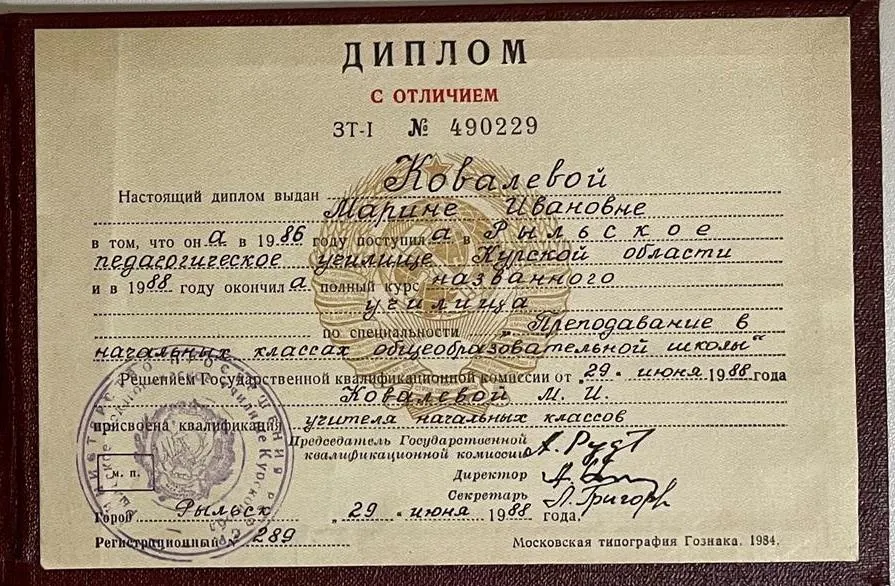 ДИПЛОМ
С ОТЛИЧИЕМ
ЗТ-I № 490229
Настоящий диплом выдан Ковалевой
Марине Ивановне
в том, что он а в 1986 году поступил а в Рыльское
педагогическое училище Курской области
и в 1988 году окончил а полный курс названного
училища
по специальности „Преподавание в
начальных классах общеобразовательной школы“
Решением Государственной квалификационной комиссии от „29“ июня 1988 года
Ковалевой М. И.
присвоена квалификация учителя начальных классов
Председатель Государственной
квалификационной комиссии
Директор
Секретарь
м. п.
Город Рыльск „29“ июня 1988 года.
Регистрационный № 289
Московская типография Гознака. 1984.